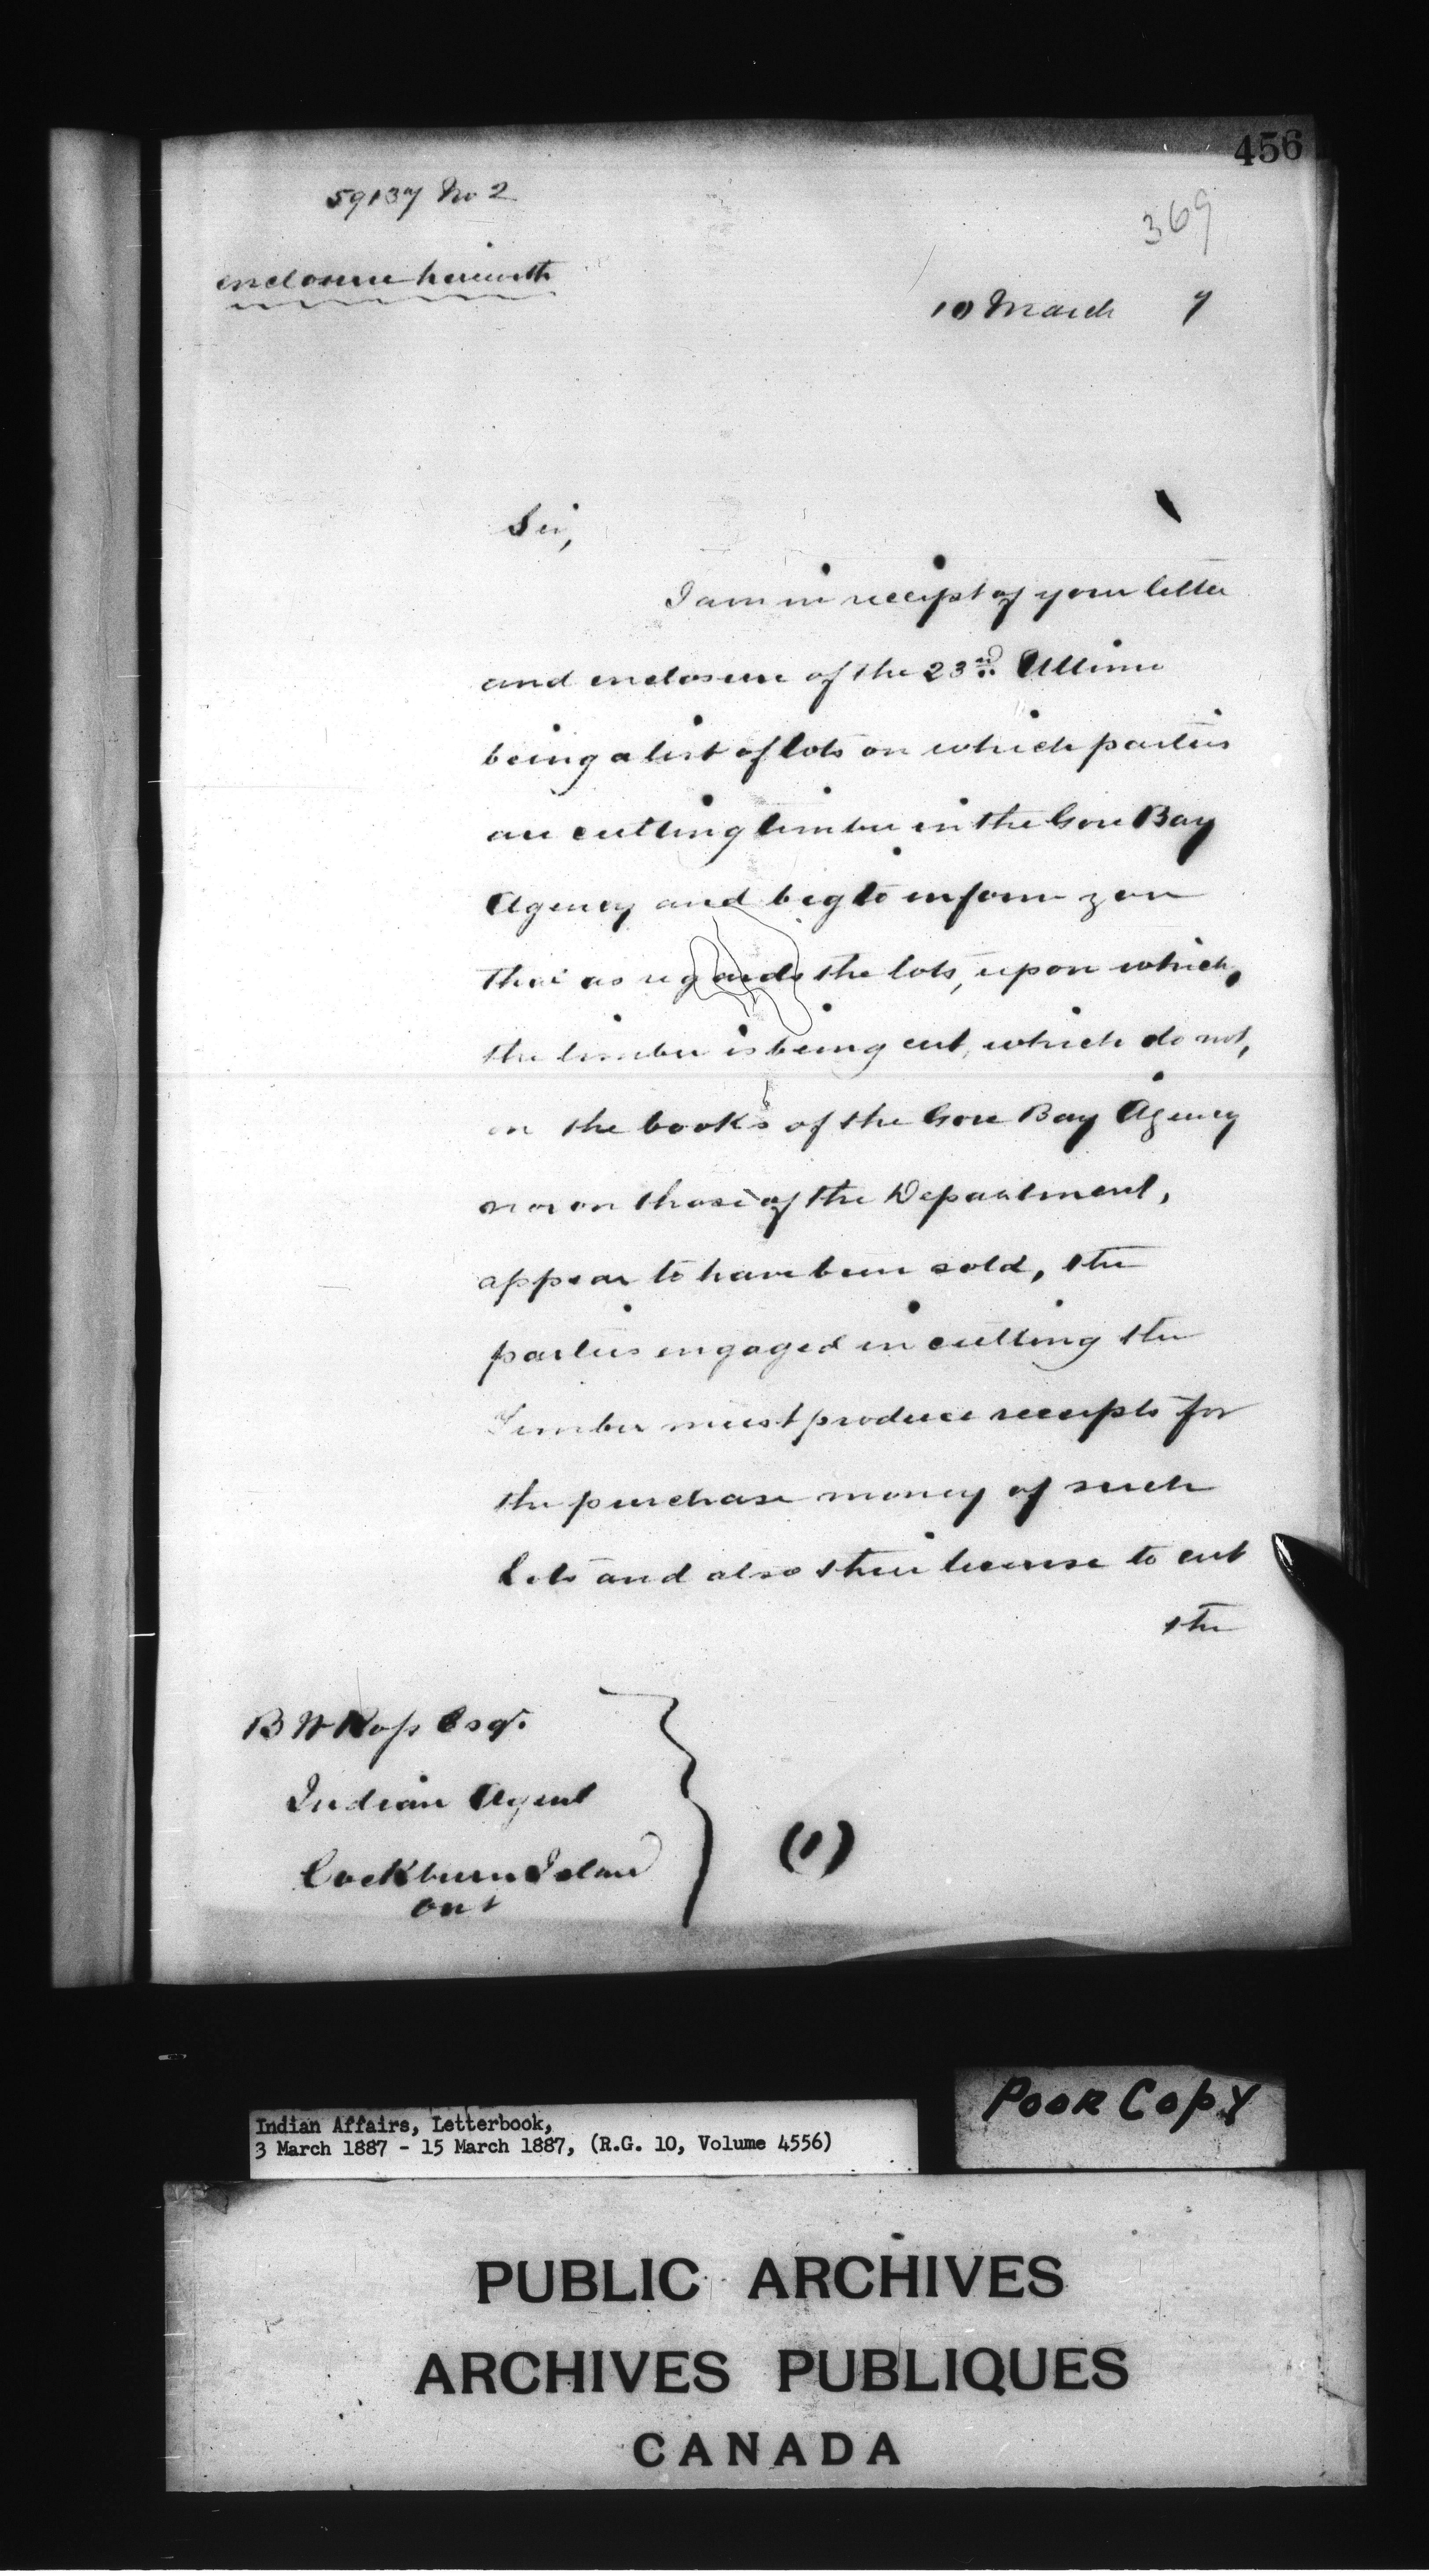 456
59137 No 2
369
enclosure herewith
10 March 7
Sir,
I am in receipt of your letter
and enclosure of the 23rd. Ultimo
being a list of lots on which parties
are cutting timber in the Gore Bay
Agency and beg to inform you
that as regards the lots, upon which,
the timber is being cut, which do not,
on the books of the Gore Bay Agency
nor on those of the Department,
appear to have been sold, the
parties engaged in cutting the
Timber must produce receipts for
the purchase money of such
Lots and also their license to cut
the
B W Ross Esqr.
Indian Agent
Cockburn Island
Ont
(1)
Indian Affairs, Letterbook,
3 March 1887 - 15 March 1887, (R.G. 10, Volume 4556)
POOR COPY
PUBLIC ARCHIVES
ARCHIVES PUBLIQUES
CANADA